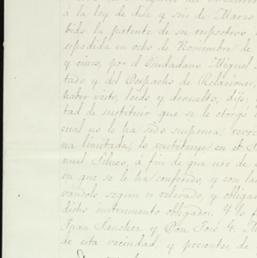 á la ley de diez y seis de Marzo
bido la patente de su respectivo
espedida en ocho de Noviembre de
y cinco, por el Ciudadano Miguel
tado y del Despacho de Relaciones
haber visto, leido y devuelto, dijo,
tad de sustituir que se le otorga
cual no le ha sido suspensa, revoc
na limitada, lo sustituye en el
nuel Siliceo, á fin de que use de
en que se le ha conferido, y con las
vandolo segun es relevado, y obligan
dicho instrumento obligados. Y lo
Juan Sanchez y Don José G.
de esta vecindad, y presentes, de